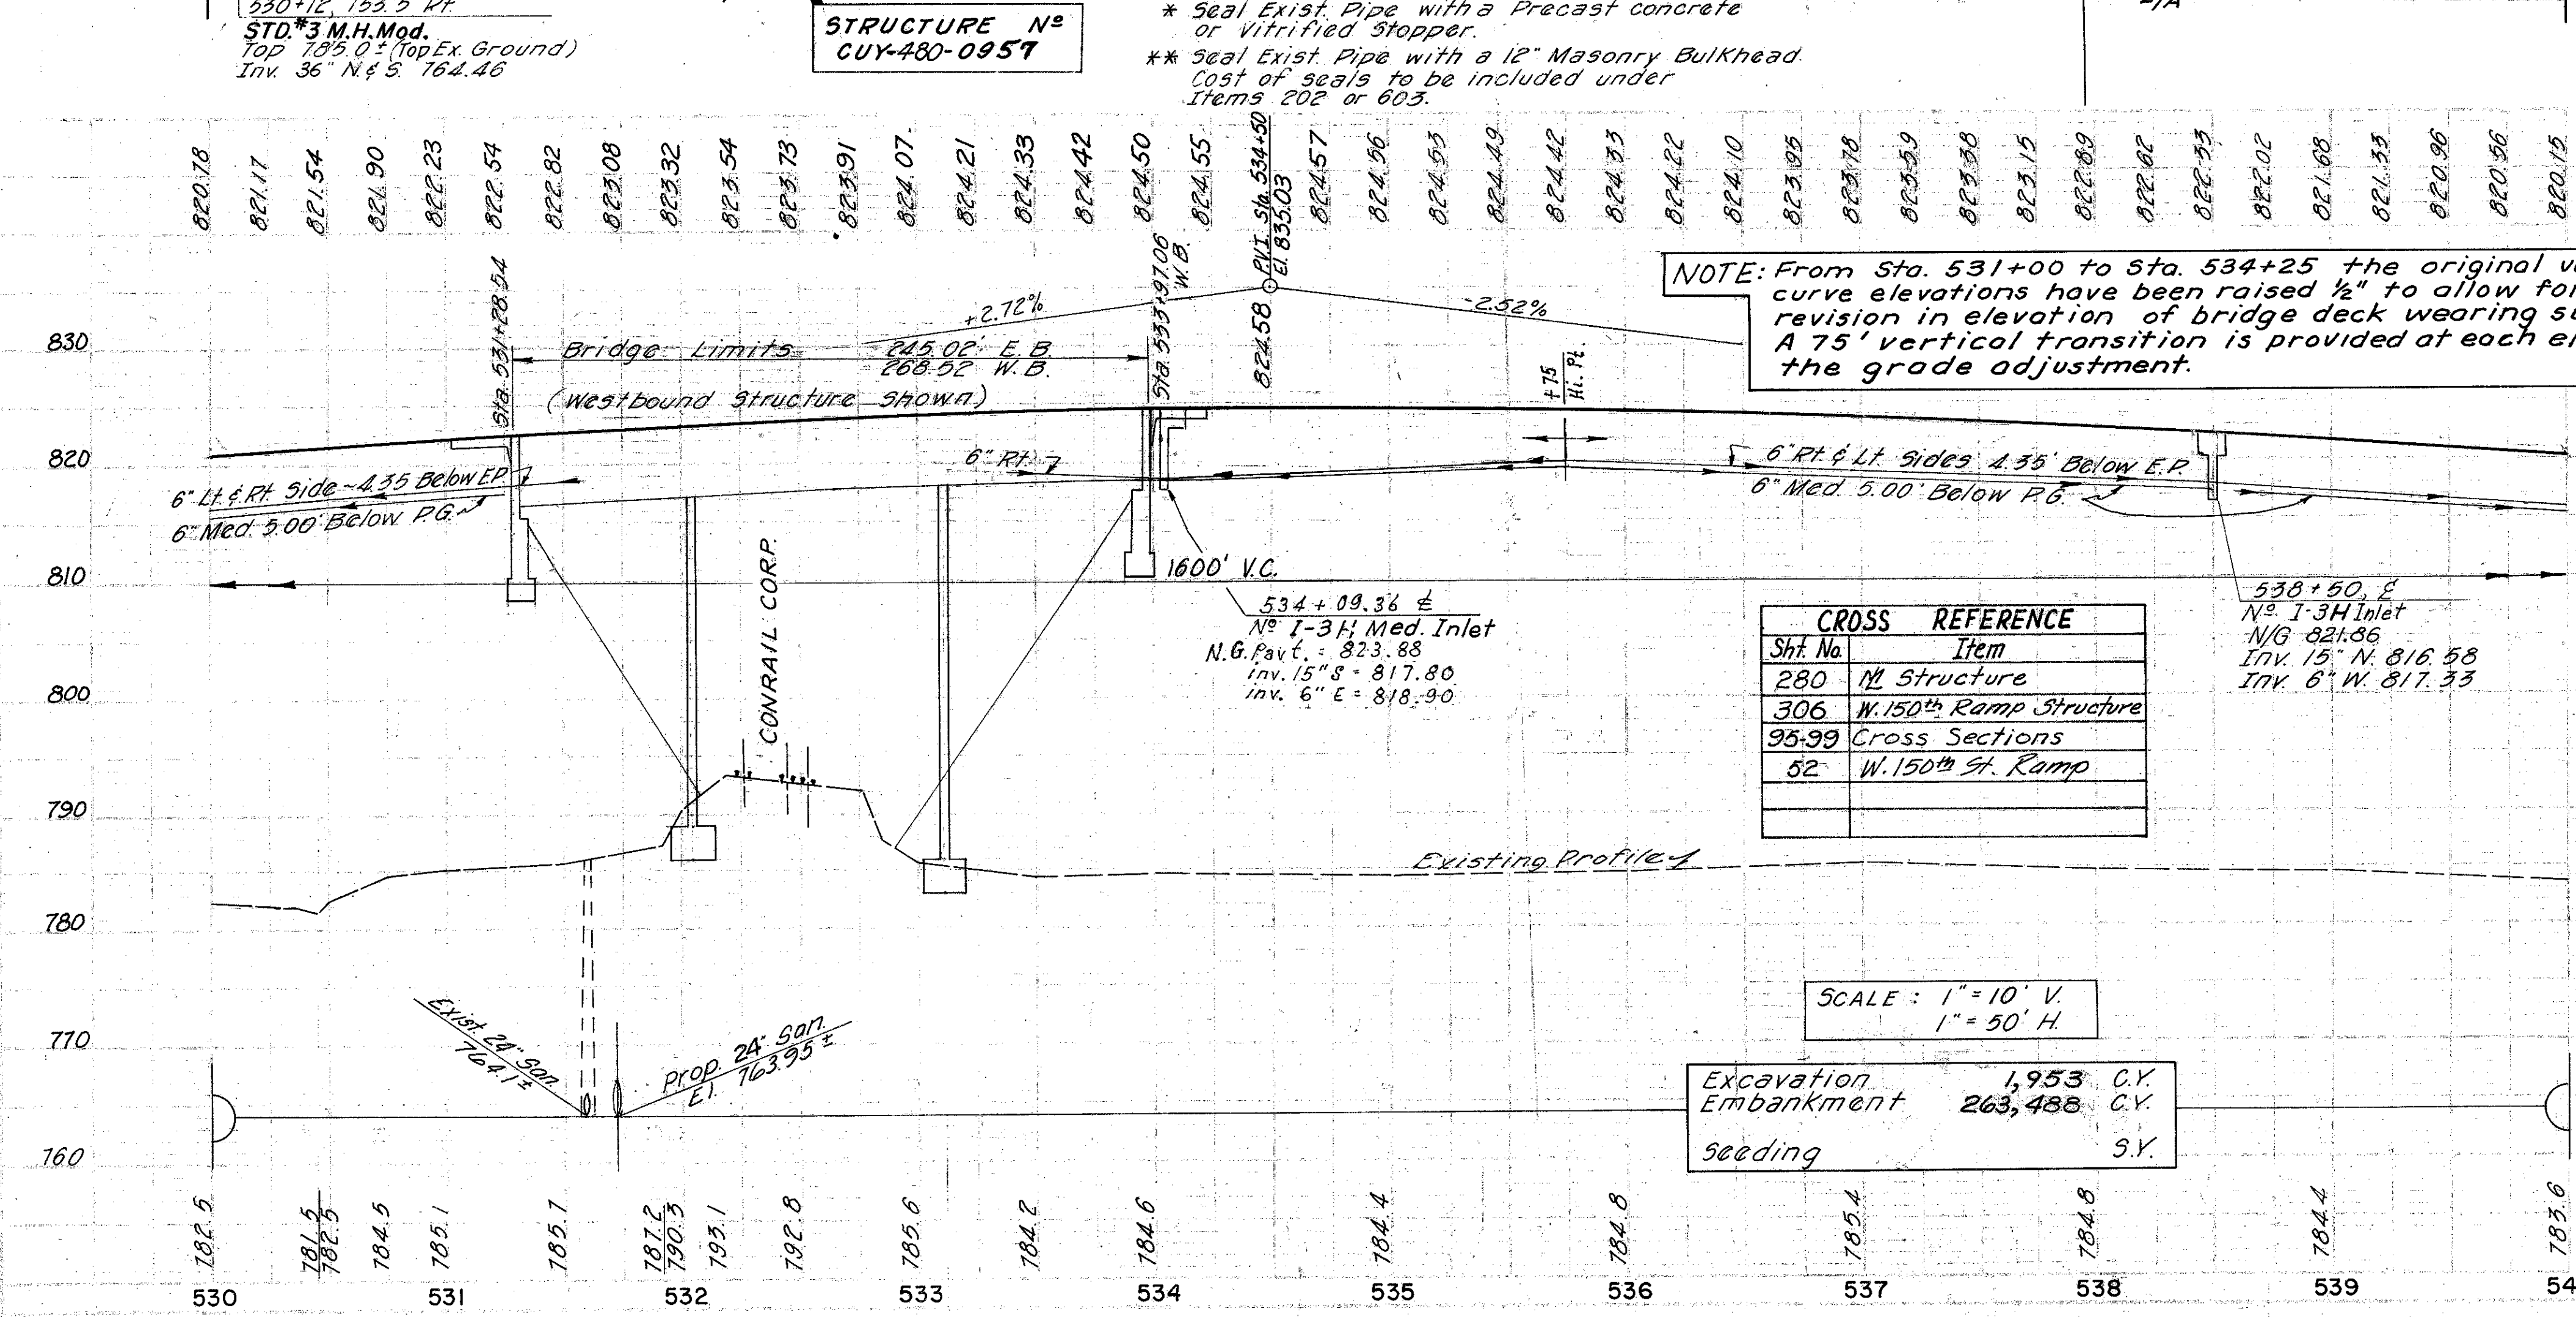 530+12, 153.5 Rt.
STD.#3 M.H.Mod.
Top 785.0± (Top Ex. Ground)
Inv. 36" N.& S. 764.46
STRUCTURE Nº
CUY-480-0957
* Seal Exist. Pipe with a Precast concrete
or Vitrified Stopper.
** Seal Exist. Pipe with a 12" Masonry Bulkhead.
Cost of seals to be included under
Items 202 or 603.
820.78 821.17 821.54 821.90 822.23 822.54 822.82 823.08 823.32 823.54 823.73 823.91 824.07 824.21 824.33 824.42 824.50 824.55 824.58 824.57 824.56 824.53 824.49 824.42 824.33 824.22 824.10 823.95 823.78 823.59 823.38 823.15 822.89 822.62 822.33 822.02 821.68 821.33 820.96 820.56 820.15
P.V.I. Sta. 534+50
El. 835.03
Sta. 531+28.54
Sta. 533+97.06
W.B.
+2.72%
-2.52%
NOTE: From Sta. 531+00 to Sta. 534+25 the original
curve elevations have been raised ½" to allow for
revision in elevation of bridge deck wearing
A 75' vertical transition is provided at each
the grade adjustment.
Bridge Limits 245.02' E.B.
268.52' W.B.
(Westbound Structure Shown)
+75
Hi. Pt.
830
820
810
800
790
780
770
760
6" Rt.
6" Lt. & Rt. Side - 4.35 Below E.P.
6" Med. 5.00' Below P.G.
6" Rt. & Lt. Sides 4.35' Below E.P.
6" Med. 5.00' Below P.G.
CONRAIL CORP.
1600' V.C.
534+09.36 ℄
Nº I-3H, Med. Inlet
N.G. Pavt. = 823.88
inv. 15" S = 817.80
inv. 6" E = 818.90
538+50, ℄
Nº I-3H Inlet
N/G 821.86
Inv. 15" N. 816.58
Inv. 6" W. 817.33
CROSS REFERENCE
Sht. No. Item
280 Structure
306 W. 150th Ramp Structure
95-99 Cross Sections
52 W. 150th St. Ramp
Existing Profile
SCALE: 1" = 10' V.
1" = 50' H.
Exist. 24" San.
764.1±
Prop. 24" San.
El. 763.95±
Excavation 1,953 C.Y.
Embankment 263,488 C.Y.
Seeding S.Y.
782.5 781.5 782.5 784.5 785.1 785.7 787.2 790.3 793.1 792.8 785.6 784.2 784.6 784.4 784.8 785.4 784.8 784.4 783.6
530 531 532 533 534 535 536 537 538 539 54